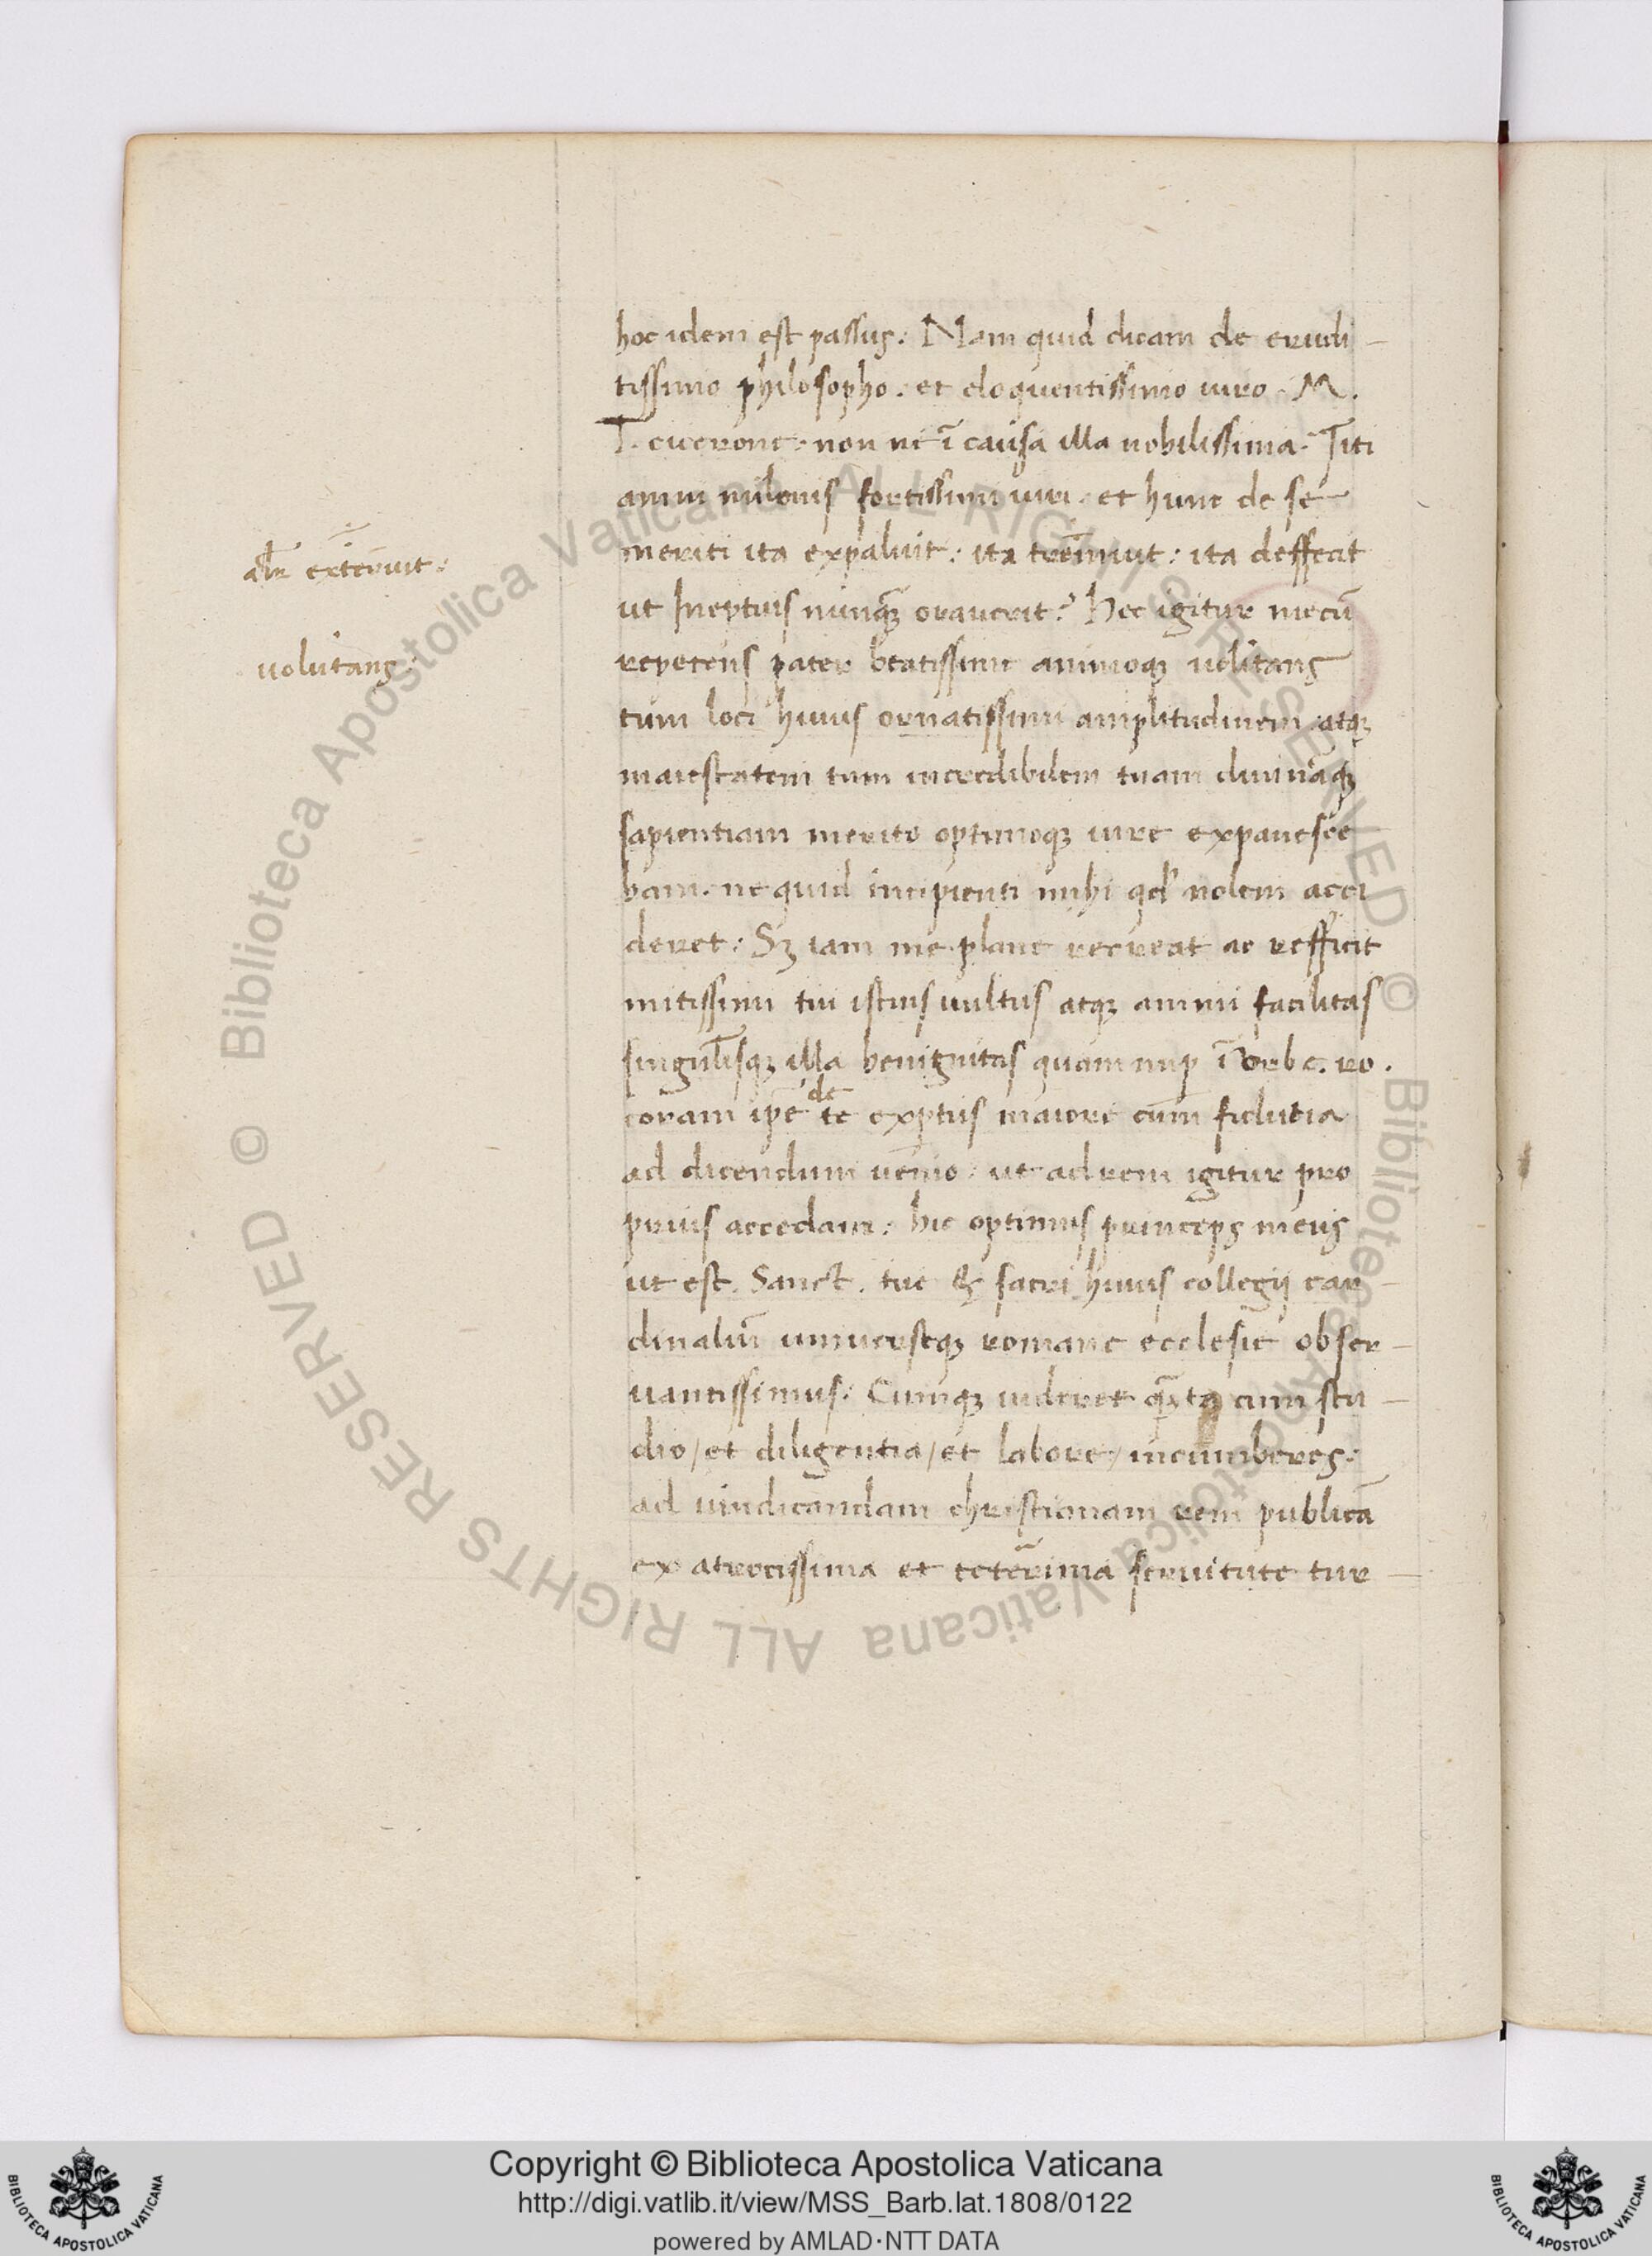 hoc idem est passus: Nam quid dicam de erudi-
tissimo philosopho. et eloquentissimo uiro. M.
T. cicerone. non ne ī causa illa nobilissima. Titi
annii milonis fortissimi uiri. et hunc de se
meriti ita expaluit: ita tremuit: ita deffecit
al̄r exteruit:
ut Ineptius nunq̄ orauerit? Hec igitur mecū
repetens pater beatissime animoq; uolitans
uolutans:
tum loci huius ornatissimi amplitudinem atq;
maiestatem tum incredibilem tuam diuināq;
sapientiam merito optimoq; iure expauesce
bam. ne quid incipienti mihi qd' nolem acci
deret: Sz iam me plane recreat ac refficit
mitissimi tui istius uultus atq; animi facilitas
singul̄isq; illa benignitas quam nup ī orbe. ro.
coram ip̄e de te exptus maiore cum fidutia
ad dicendum uenio. ut ad rem igitur pro
prius accedam: hic optimus princeps meus
ut est. Sanct. tue & sacri huius collegij car-
dinaliū uniuerseq; romane ecclesie obser-
uantissimus: Cumq; uideret q̄ta cum stu-
dio/ et diligentia/ et labore/ incumberes:
ad uindicandam christianam rem publicā
ex atrocissima et teterrima seruitute tur-
Copyright © Biblioteca Apostolica Vaticana
http://digi.vatlib.it/view/MSS_Barb.lat.1808/0122
powered by AMLAD·NTT DATA
BIBLIOTECA APOSTOLICA VATICANA
BIBLIOTECA APOSTOLICA VATICANA
© Biblioteca Apostolica Vaticana ALL RIGHTS RESERVED © Biblioteca Apostolica Vaticana ALL RIGHTS RESERVED